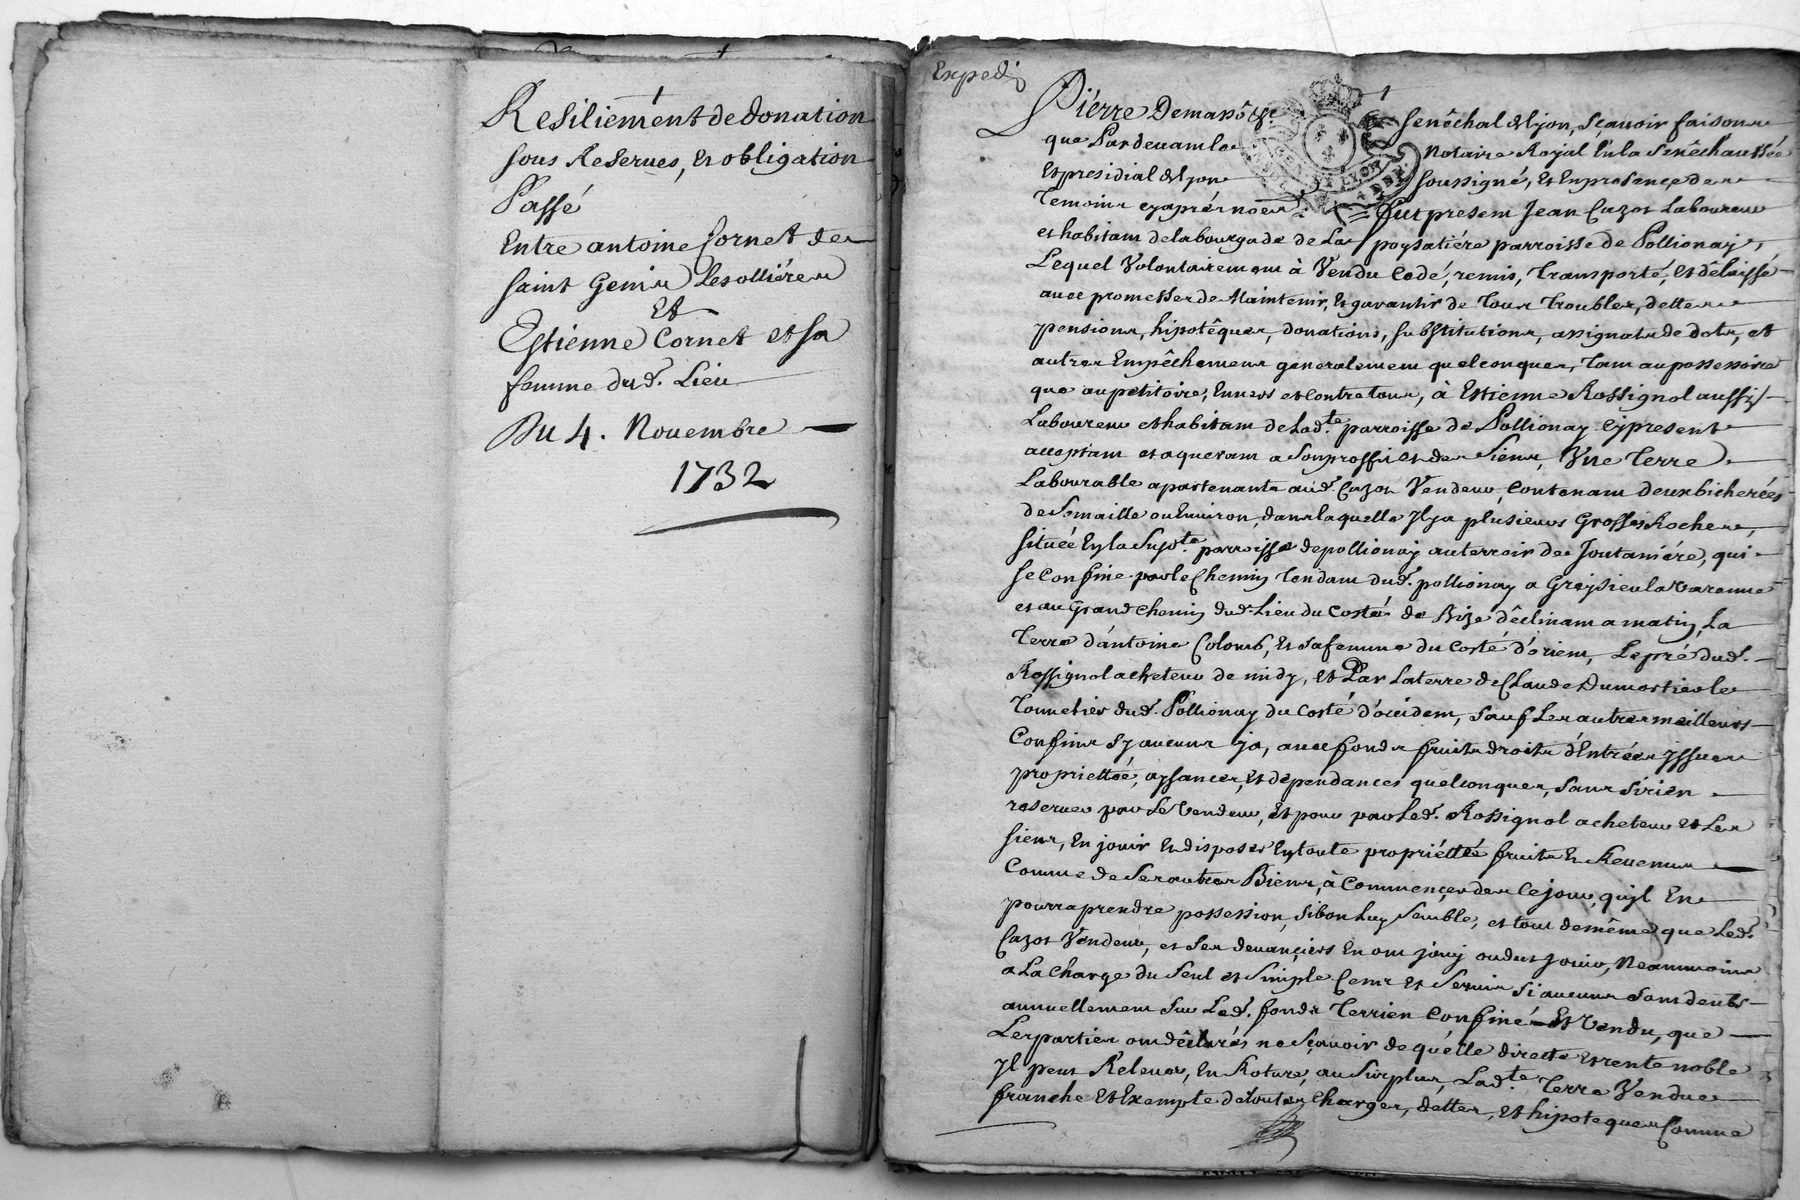 Resiliement de donation
sous Reserues, et obligation
Passé
Entre antoine Cornet de
saint Genis Lesollières
Et
Estienne Cornet et sa
femme dud. Lieu
Du 4. Nouembre
1732
Exped.
Pierre Demasso seneschal de Lyon, sçauoir faisons
que Pardeuant le notaire Royal En la Senêchaussée
Et presidial de Lyon soussigné, et En presence des
Temoins cyaprés nommés Fut present Jean Cuzot Laboureur
et habitant de la bourgade de La poysatiére parroisse de Pollionay,
Lequel Volontairement à Vendu cedé, remis, Transporté, et dêlaissé
auec promesses de Maintenir, Et garantir de Tous Troubles, dettes
pensions, hipotêques, donations, substitutions, assignats de dots, et
autres Empêchemens generalement quelconques, Tant au possessoire
que au petitoire, Enuers et contre tous, à Estienne Rossignol aussy
Laboureur et habitant de Lad.te parroisse de Pollionay cy present
acceptant et aquerant a son proffit et des siens, Vne Terre
Labourable apartenante aud. Cuzot Vendeur, Contenant deux bicherées
de Semaille ou Enuiron, dans laquelle Il ya plusieurs Grosses Roches,
située En la Susd.te parroisse de pollionay au terroir de Joutaniére, qui
se Confine par le Chemin Tendant dud. pollionay a Greysieu la Varenne
et au Grand Chemin dud. Lieu du Costé de Bize dêclinant a matin, La
Terre d'antoine Colomb, Et sa femme du Costé d'orient, Le pré dud.
Rossignol acheteur de midy, et Par La terre de Claude Dumortier le
Tonnelier dud. Pollionay du Costé d'occident, sauf Les autres meilleurs
Confins sy aucuns ya, auec fonds fruits droits d'Entrées Issues
propriettée, aysances, Et dépendances quelconques, sans s'irien
reseruer par Le Vendeur, Et pour par Led. Rossignol acheteur et Les
siens, En jouir En disposer En toute propriéttée fruits En Reuenus
Comme de Ses autres Biens, à Commençer des Ce jour, qu'il En
pourra prendre possession, si bon Luy Semble, et tout de même que Led.
Cuzot Vendeur, et Ses deuançiers En ont jouy ou dut jouir, Neanmoins
a La Charge du Seul et Simple Cens Et Seruis si aucuns sont deubs
annuellement Sur Led. fonds Terrien Confiné Et Vendu, que
Les parties ont dêclarés ne Sçauoir de quélle directe et rente noble
Il peut Rêleuer, En Roture, au Surplus, Lad.te Terre Vendue
franche Et Exempte de toutes Charges, dettes, et hipoteques Comme